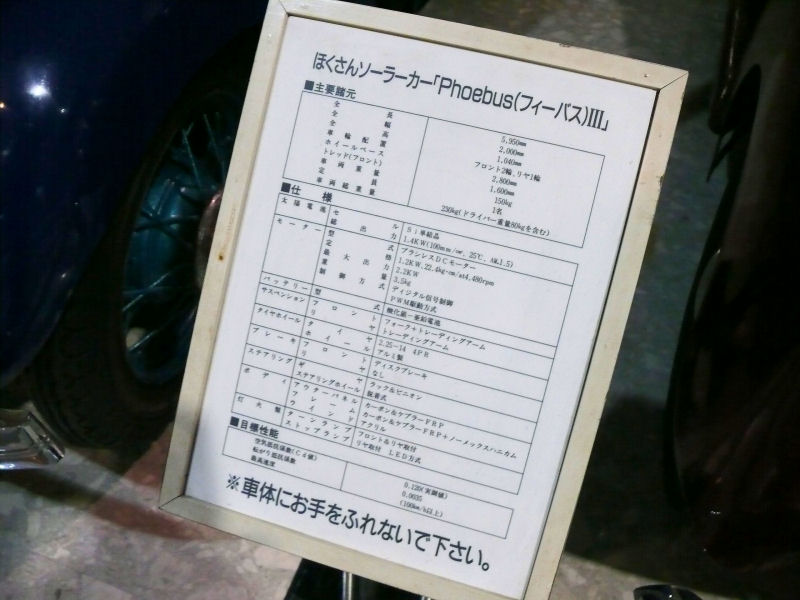 ほくさんソーラーカー「Phoebus(フィーバス)III」
■主要諸元
全長 5,950mm
全幅 2,000mm
全高 1,040mm
車輪配置 フロント2輪、リヤ1輪
ホイールベース 2,800mm
トレッド(フロント) 1,600mm
車両重量 150kg
定員 1名
車両総重量 230kg(ドライバー重量80kgを含む)
■仕様
太陽電池 セル Si単結晶
総出力 1.4KW(100mm/㎠, 25℃, AM1.5)
モーター 型式 ブラシレスDCモーター
定格 1.2KW, 22.4kg-cm/at4,480rpm
最大出力 2.2KW
重量 3.5kg
制御方式 ディジタル信号制御
PWM駆動方式
バッテリー 型式 酸化銀-亜鉛電池
サスペンション フロント フォーク+トレーディングアーム
リヤ トレーディングアーム
タイヤホイール タイヤ 2.25-14 4PR
ホイール アルミ製
ブレーキ フロント ディスクブレーキ
リヤ なし
ステアリング ギヤ ラック&ピニオン
ステアリングホイール 脱着式
ボディ アウターパネル カーボン&ケブラーFRP
フレーム カーボン&ケブラーFRP+ノーメックスハニカム
ウインド アクリル
灯火類 ターンランプ フロント&リヤ取付
ストップランプ リヤ取付 LED方式
■目標性能
空気抵抗係数(Cd値) 0.120(実測値)
転がり抵抗係数 0.0035
最高速度 (100km/h以上)
※車体にお手をふれないで下さい。